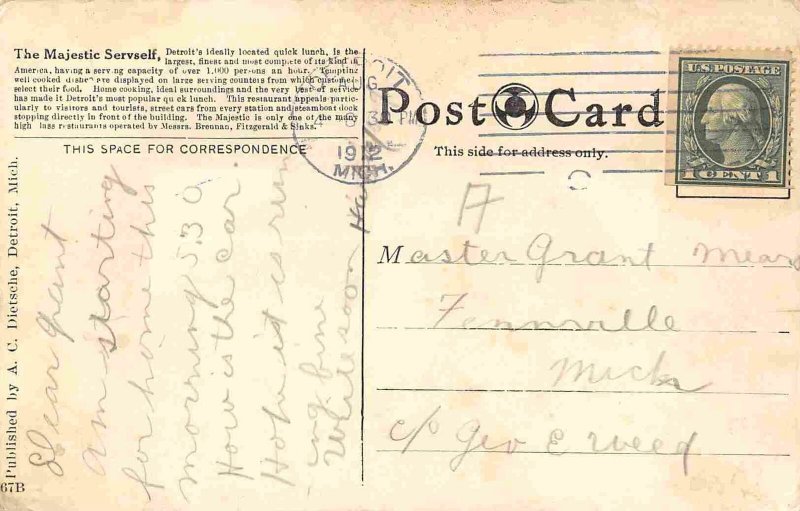 The Majestic Servself, Detroit's ideally located quick lunch, is the
largest, finest and most complete of its kind in
America, having a serving capacity of over 1,000 persons an hour. Tempting
well cooked dishes are displayed on large serving counters from which customers
select their food. Home cooking, ideal surroundings and the very best of service
has made it Detroit's most popular quick lunch. This restaurant appeals partic-
ularly to visitors and tourists, street cars from every station and steamboat dock
stopping directly in front of the building. The Majestic is only one of the many
high class restaurants operated by Messrs. Brennan, Fitzgerald & Sinks.
THIS SPACE FOR CORRESPONDENCE
Dear Grant
Am starting
for home this
morning 5.30
How is the car.
Hope it is runn
ing fine
Write soon
Published by A. C. Dietsche, Detroit, Mich.
67B
Post Card
This side for address only.
AUG
3 PM
1912
MICH.
U.S. POSTAGE
1 CENT 1
A
Master Grant Mears
Fennville
Mich
c/o Geo E Weed